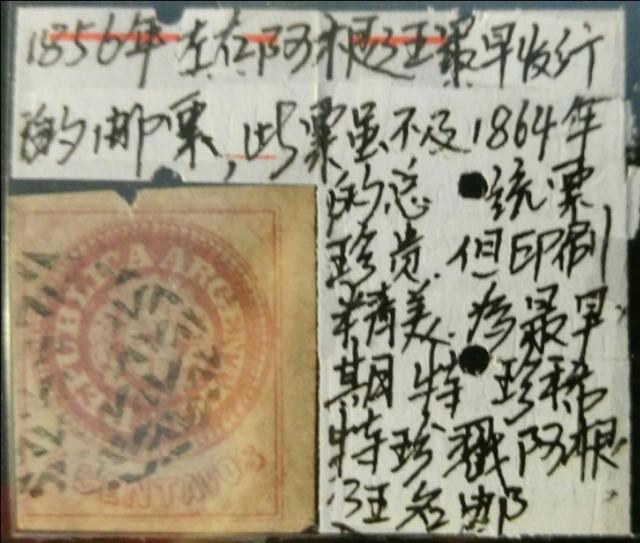 1856年左右阿根廷王最早发行
的邮票,此票虽不及1864年
的总统票
珍贵.但印刷
精美.为最早
期特珍稀
特珍戳阿根
汪名邮
REPUBLICA ARGENTINA
CENTAVOS